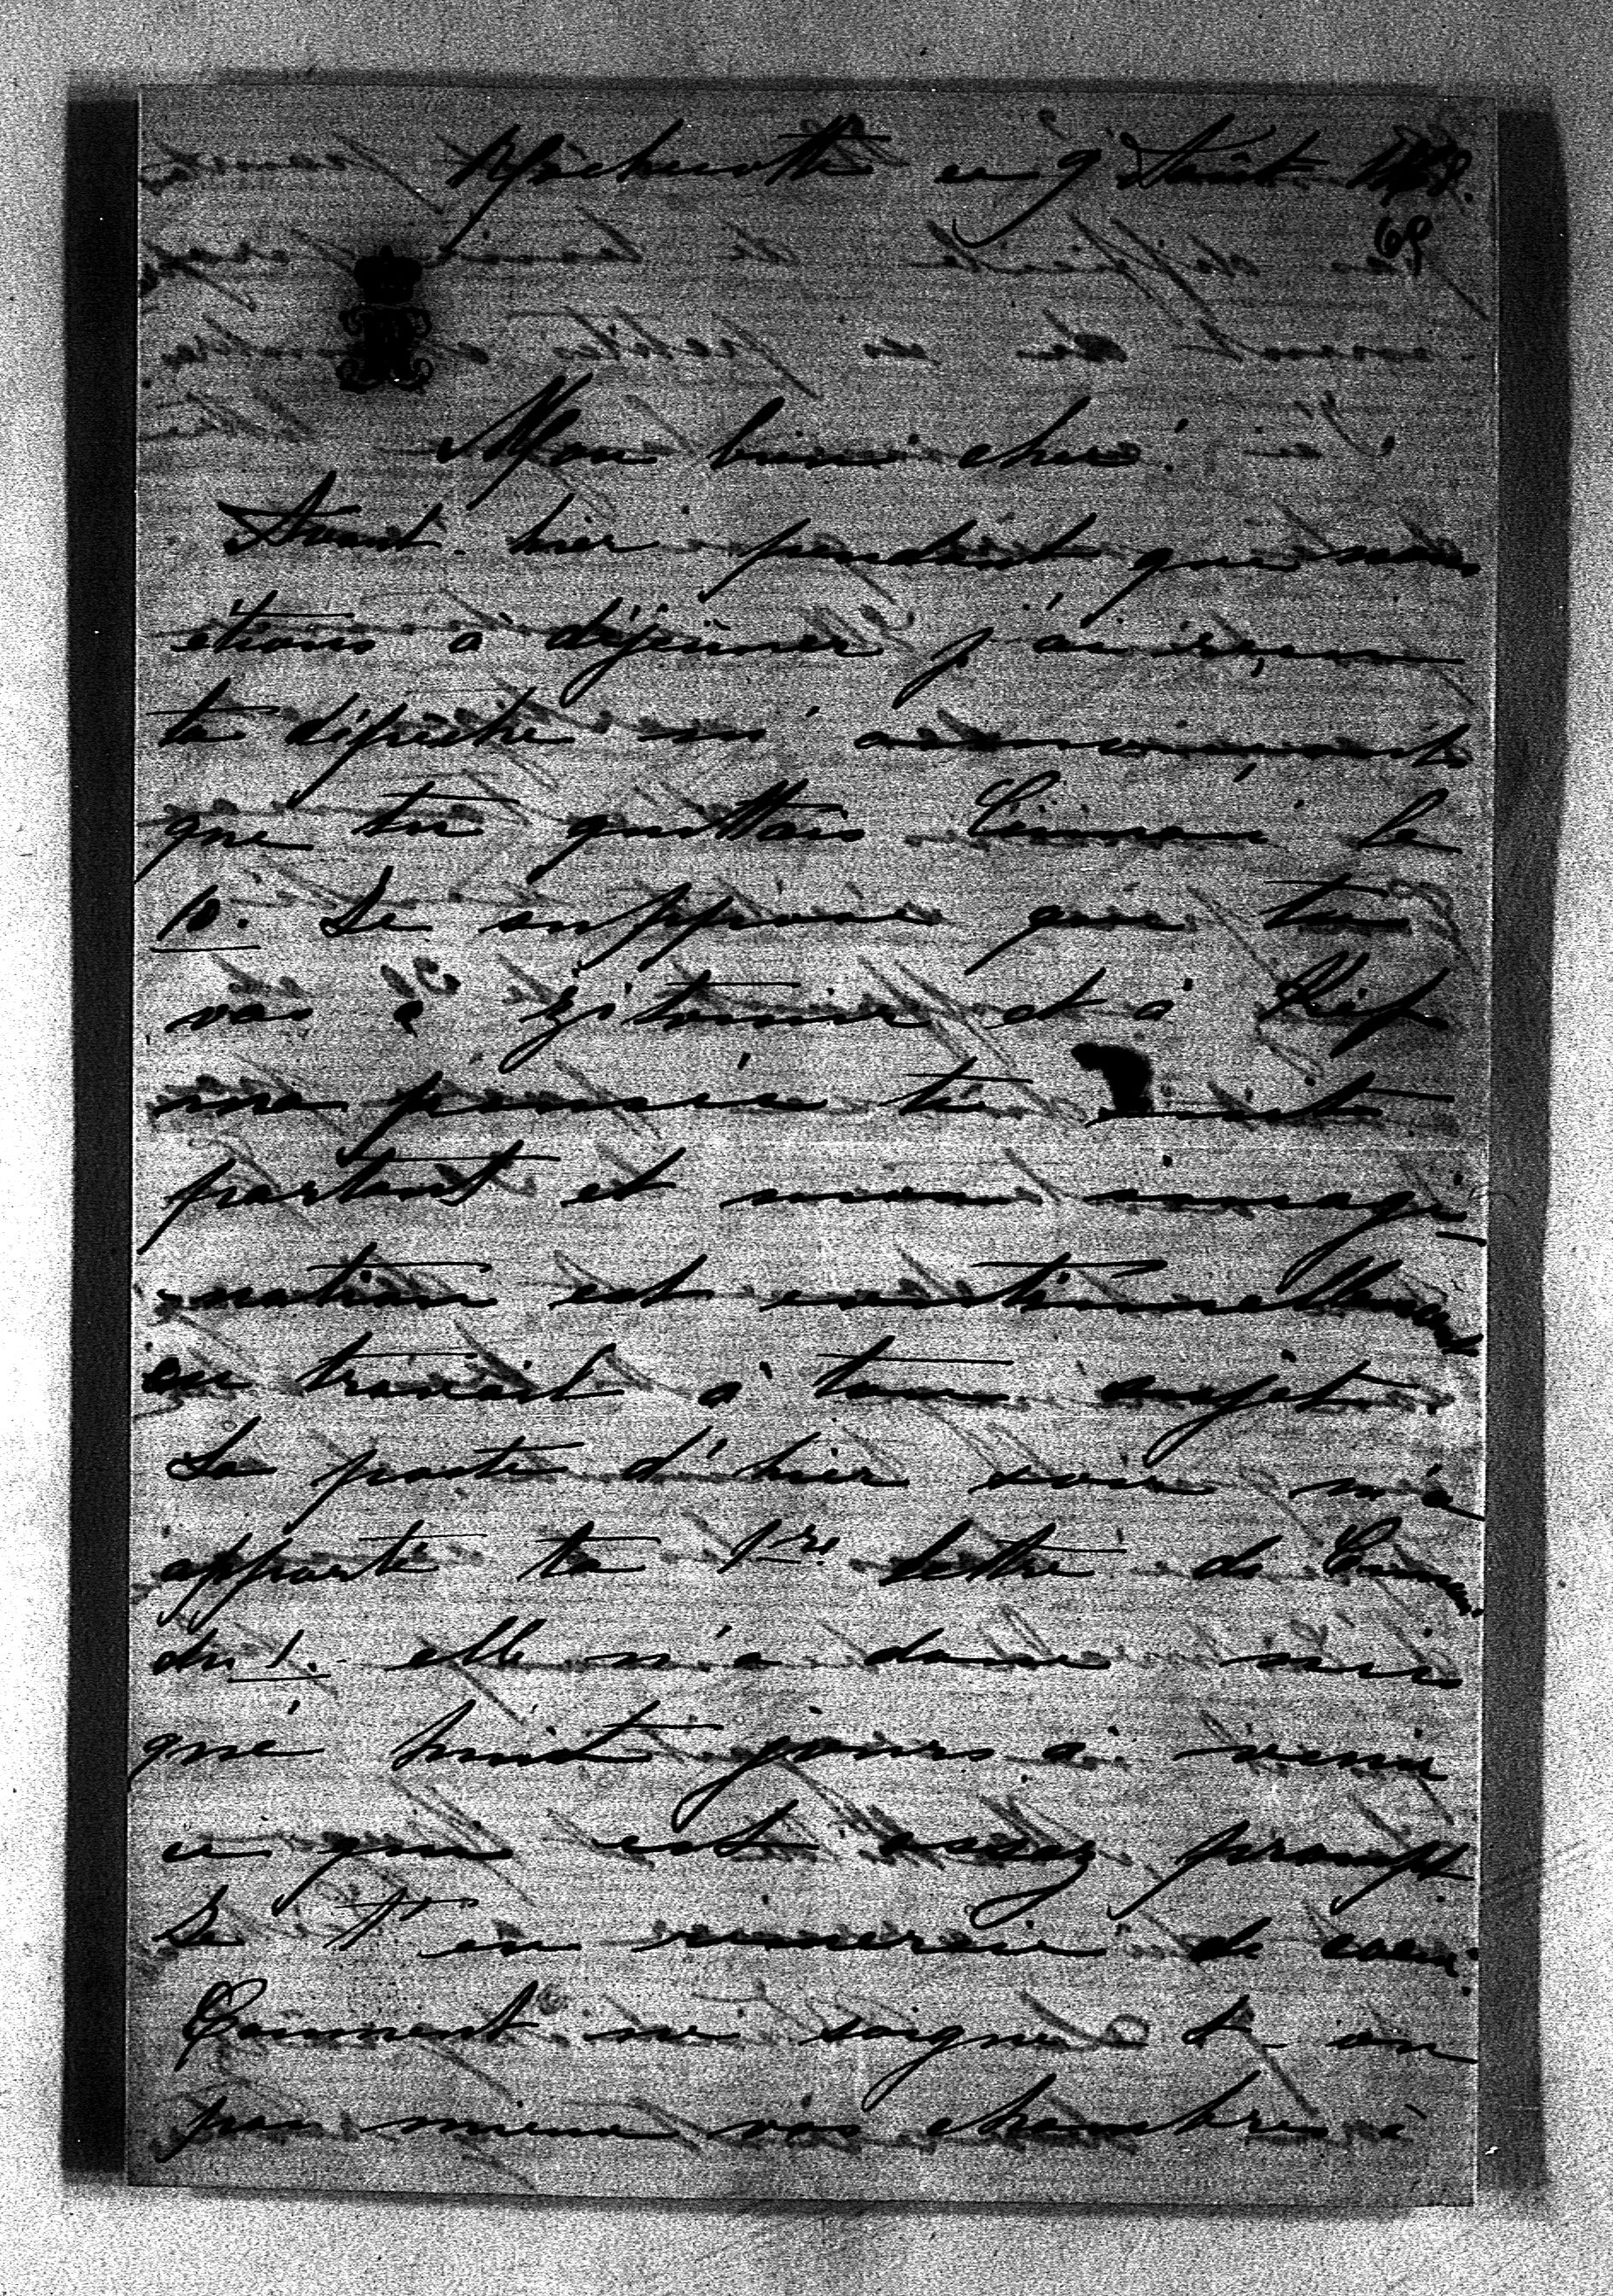 ce 9 Août
69
Mon bien cher!
Avant-hier pendant que nous
étions à déjeuner j'ai reçu
ta dépêche m'annonçant
que tu quittais le
10. Je suppose que tu
vas à Gitomir et à Kief
ma pensée te suit
partout et mon imagi-
-nation est continuellement
en travail à ton sujet.
La poste d'hier soir m'a
apporté ta 1re lettre de
du 1. elle n'a donc mis
que huit jours à venir
ce qui est assez prompt
Je t'en remercie de coeur.
Comment ne soigne t-on
pas mieux vos chambres à